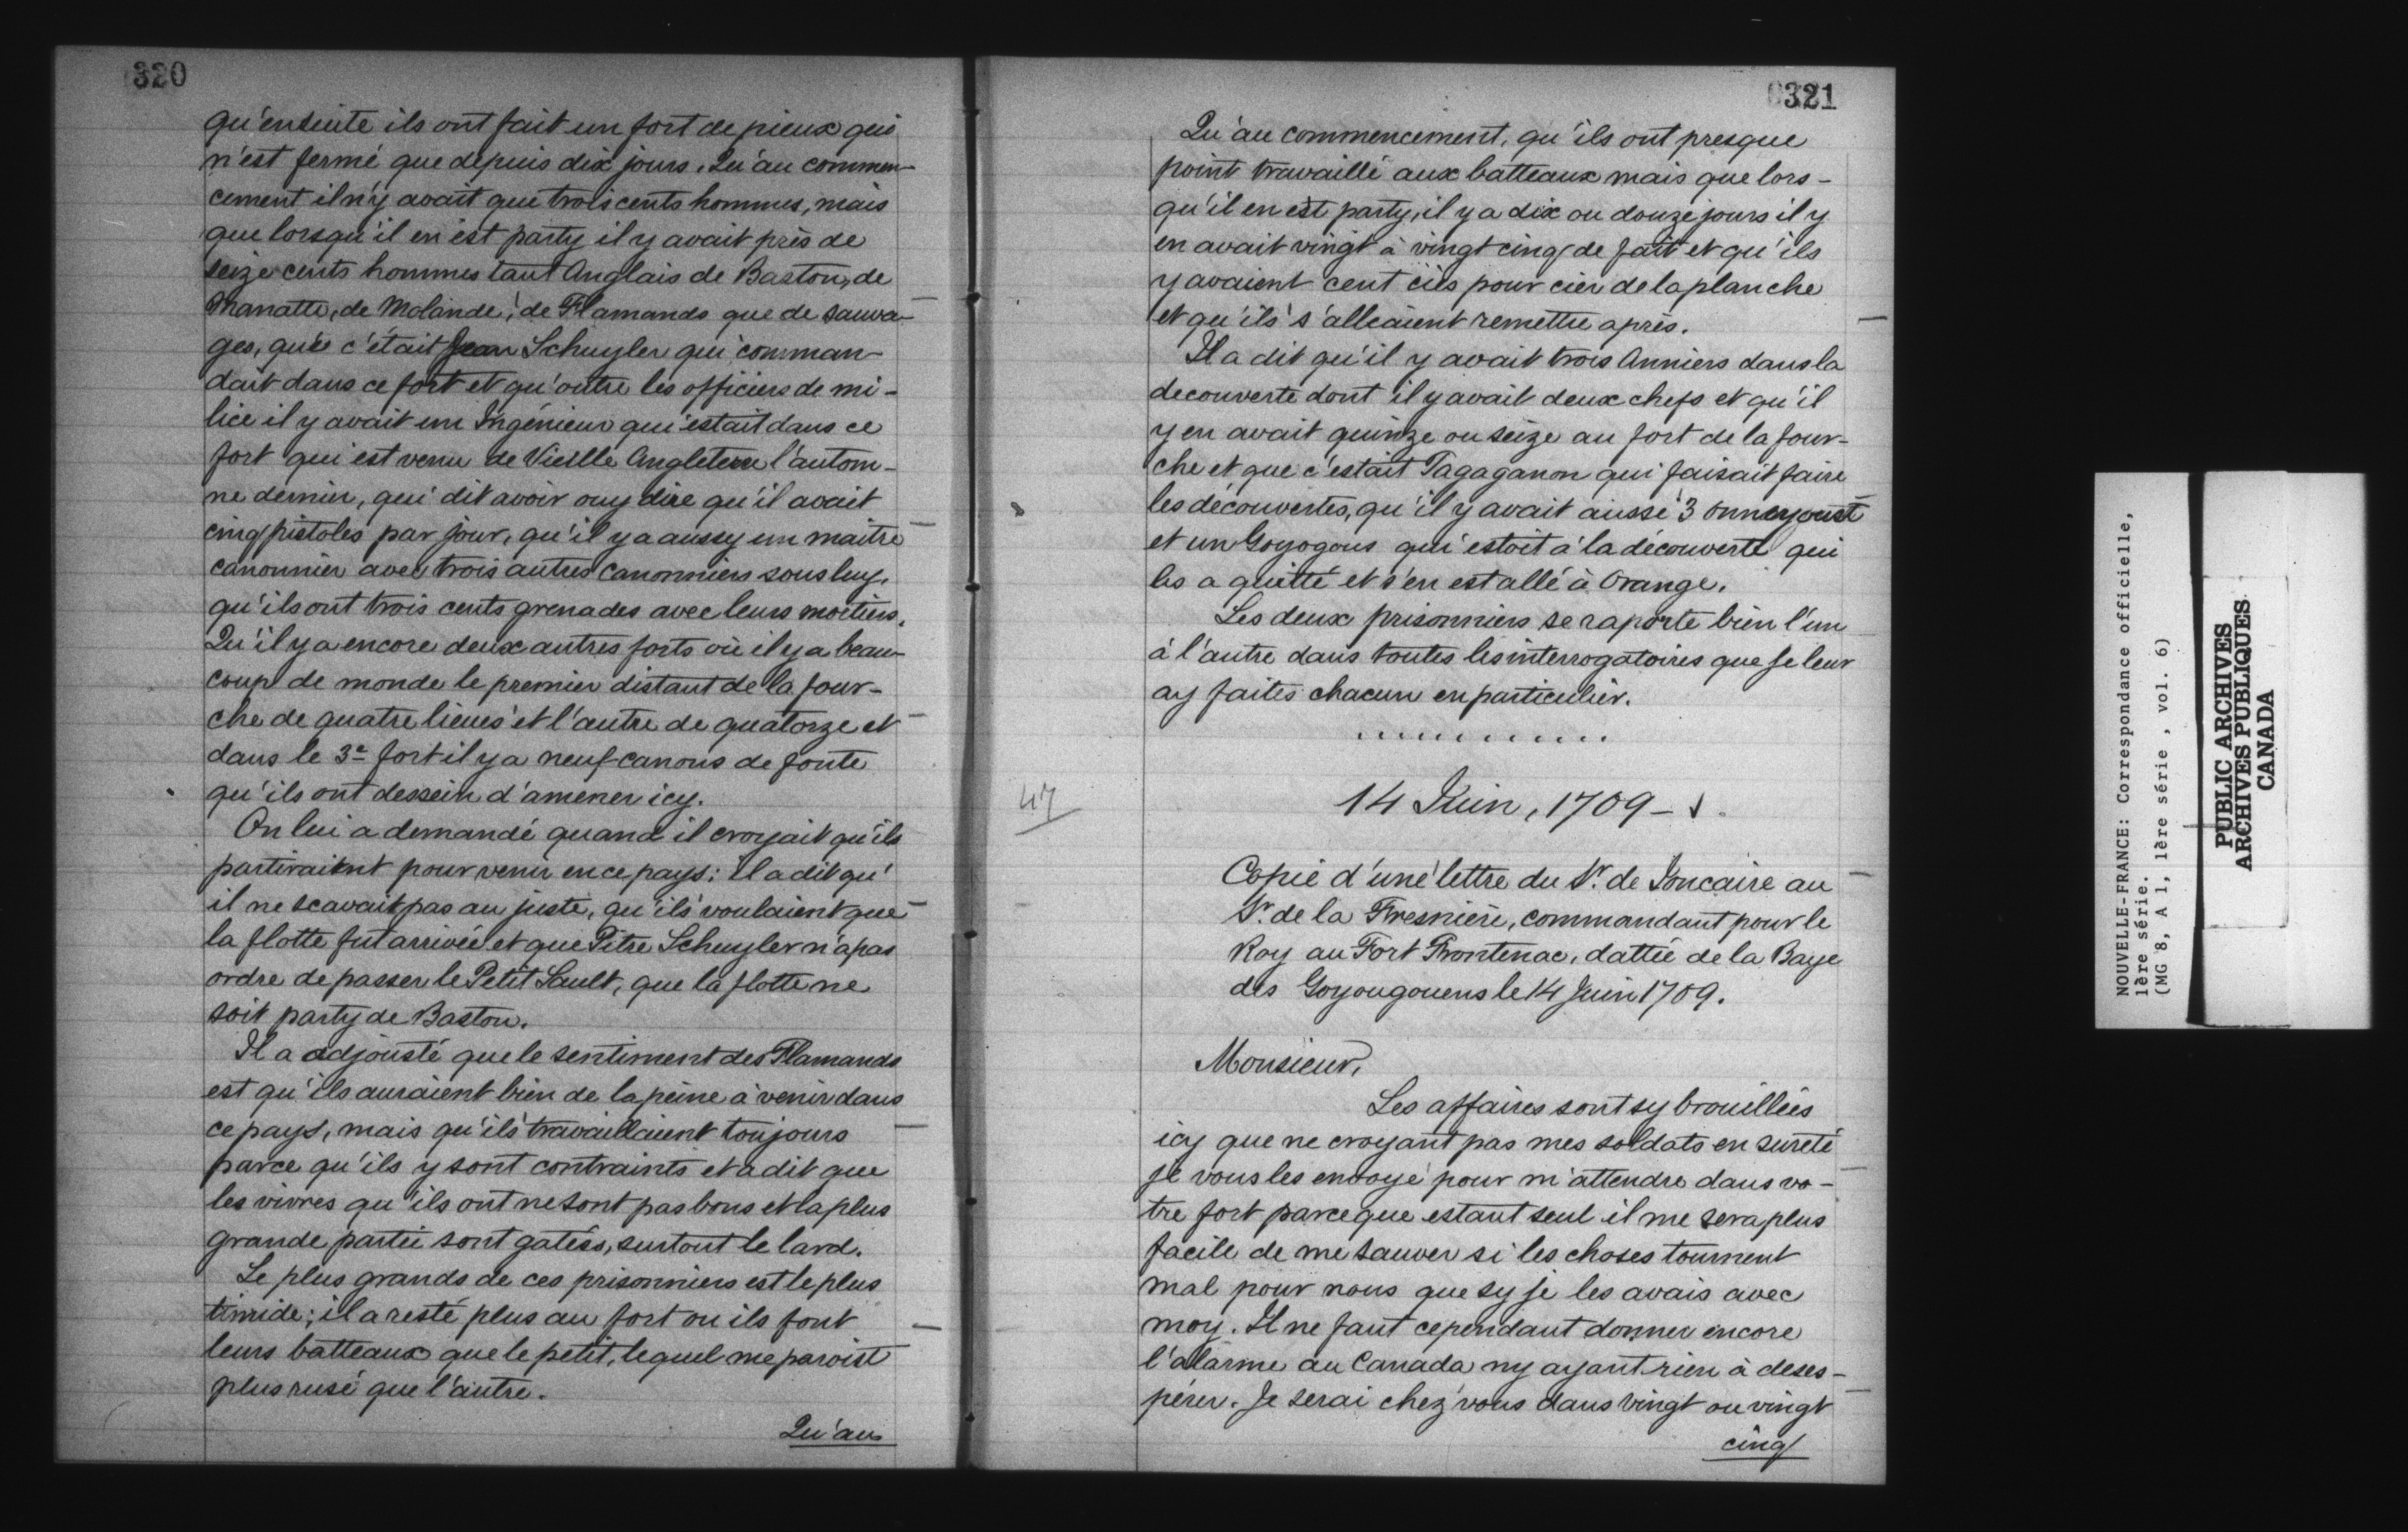 320
qu'ensuite ils ont fait un fort de pieux qui
n'est fermé que depuis dix jours. Qu'au commen-
cement il n'y avait que trois cents hommes, mais
que lorsqu'il en est party il y avait près de
seize cents hommes tant Anglais de Baston, de
Manatte, de Molande, de Flamands que de sauva-
ges, que c'était Jean Schuyler qui comman-
dait dans ce fort et qu'outre les officiers de mi-
lice il y avait un Ingénieur qui estait dans ce
fort qui est venu de Vieille Angleterre l'autom-
ne dernier, qui dit avoir ouy dire qu'il avait
cinq pistoles par jour, qu'il y a aussy un maître
canonnier avec trois autres canonniers sous luy,
qu'ils ont trois cents grenades avec leurs mortiers.
Qu'il y a encore deux autres forts où il y a beau-
coup de monde le premier distant de la four-
che de quatre lieues et l'autre de quatorze et
dans le 3e fort il y a neuf canons de fonte
qu'ils ont dessein d'amener icy.
On lui a demandé quand il croyait qu'ils
partiraient pour venir en ce pays: il a dit qu'
il ne scavait pas au juste, qu'ils voulaient que
la flotte fut arrivée et que Pitre Schuyler n'a pas
ordre de passer le Petit Sault, que la flotte ne
soit party de Baston.
Il a adjousté que le sentiment des Flamands
est qu'ils auraient bien de la peine à venir dans
ce pays, mais qu'ils travaillaient toujours
parce qu'ils y sont contraints et a dit que
les vivres qu'ils ont ne sont pas bons et la plus
grande partie sont gatées, surtout le lard.
Le plus grands de ces prisonniers est le plus
timide; il a resté plus au fort ou ils font
leurs batteaux que le petit, lequel me paroist
plus rusé que l'autre.
Qu'au
321
Qu'au commencement, qu'ils ont presque
point travaillé aux batteaux mais que lors-
qu'il en est party, il y a dix ou douze jours il y
en avait vingt à vingt cinq de fait et qu'ils
y avaient cent ciés pour cier de la planche
et qu'ils s'alleaient remettre après.
Il a dit qu'il y avait trois Anniers dans la
decouverte dont il y avait deux chefs et qu'il
y en avait quinze ou seize au fort de la four-
che et que c'estait Tagaganon qui faisait faire
les découvertes, qu'il y avait aussi 3 onneyoust
et un Goyogous qui estoit à la découverte qui
les a quitté et s'en est allé à Orange.
Les deux prisonniers se raporte bien l'un
à l'autre dans toutes les interrogatoires que je leur
ay faites chacun en particulier.
.............
47
14 Juin, 1709 -
Copie d'une lettre du Sr. de Joncaire au
Sr. de la Fresnière, commandant pour le
Roy au Fort Frontenac, dattée de la Baye
des Goyougouens le 14 Juin 1709.
Monsieur,
Les affaires sont sy brouillées
icy que ne croyant pas mes soldats en sureté
je vous les envoye pour m'attendre dans vo-
tre fort parceque estant seul il me sera plus
facile de me sauver si les choses tournent
mal pour nous que sy je les avais avec
moy. Il ne faut cependant donner encore
l'alarme au Canada ny ayant rien à deses-
pérer. Je serai chez vous dans vingt ou vingt
cinq
NOUVELLE-FRANCE: Correspondance officielle,
1ère série.
(MG 8, A 1, 1ère série , vol. 6)
PUBLIC ARCHIVES
ARCHIVES PUBLIQUES
CANADA